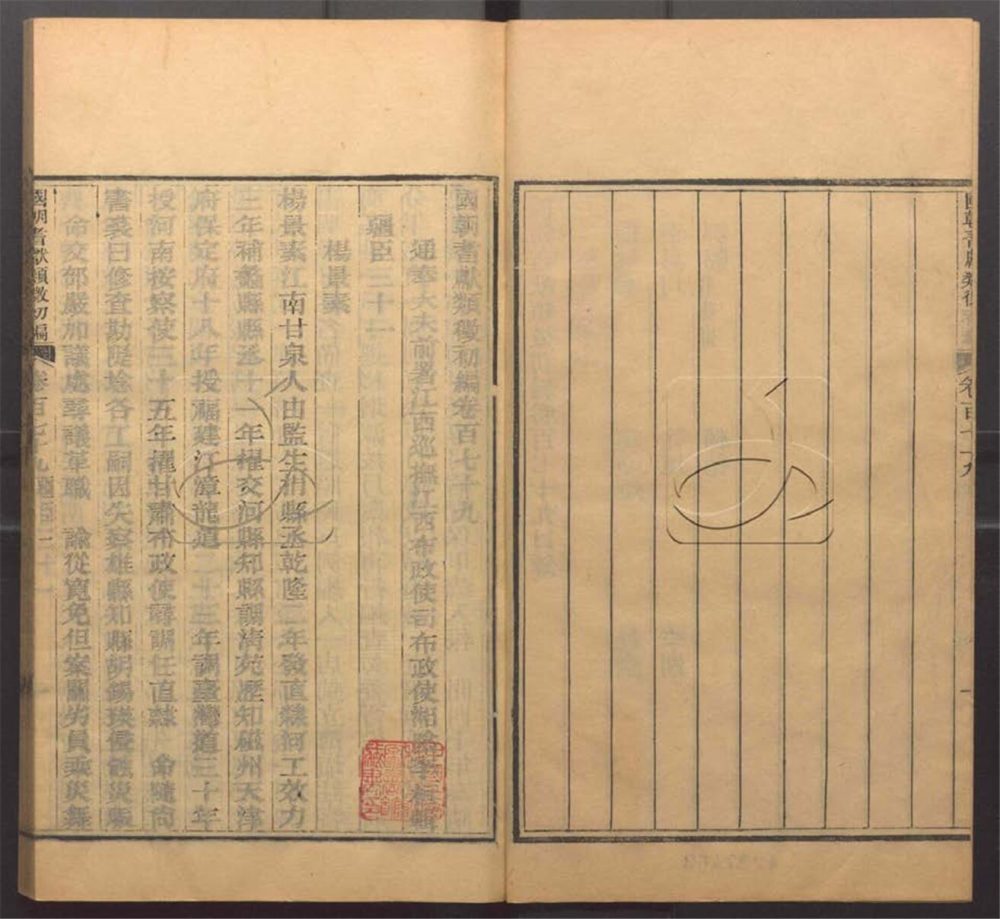 國朝耆獻類徵初編卷百七十九
通奉大夫前署江西巡撫江西布政使司布政使湘陰李桓輯
疆臣三十一
楊景素
楊景素江南甘泉人由監生捐縣丞乾隆三年發直隸河工效力
三年補蠡縣縣丞十一年擢交河縣知縣調清苑歷知磁州天津
府保定府十八年授福建汀漳龍道二十三年調臺灣道三十年
授河南按察使三十五年擢甘肅布政使尋調任直隸 命隨尚
書裘曰修查勘隄埝各工嗣因失察雄縣知縣胡錫瑛侵蝕災賑
命交部嚴加議處尋議革職 諭從寬免但案關劣員乘災舞
國朝耆獻類徵初編 卷百七十九 疆臣三十一 一